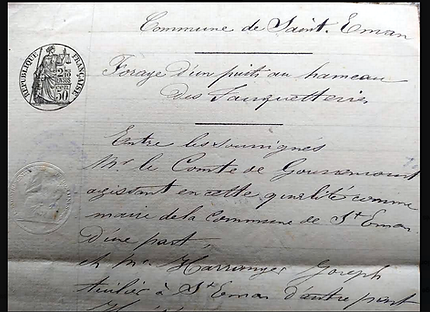 Commune de Saint-Eman
Forage d'un puits au hameau
des
RÉPUBLIQUE FRANÇAISE
50
Entre les soussignés
Mr le Comte de
agissant en cette qualité comme
maire de la Commune de St Eman
d'une part,
et Mr Joseph
à St Eman d'autre part